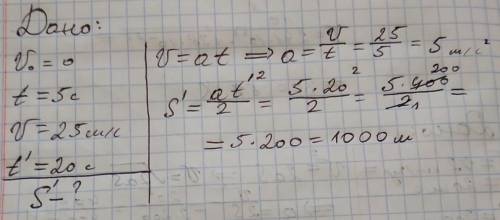 Дано:
V₀ = 0
t = 5с
V = 25 м/с
t' = 20 с
S' - ?
V = at ⟹ a = V/t = 25/5 = 5 м/с²
S' = at'²/2 = 5·20²/2 = 5·400/2 200 1 =
= 5·200 = 1000 м.